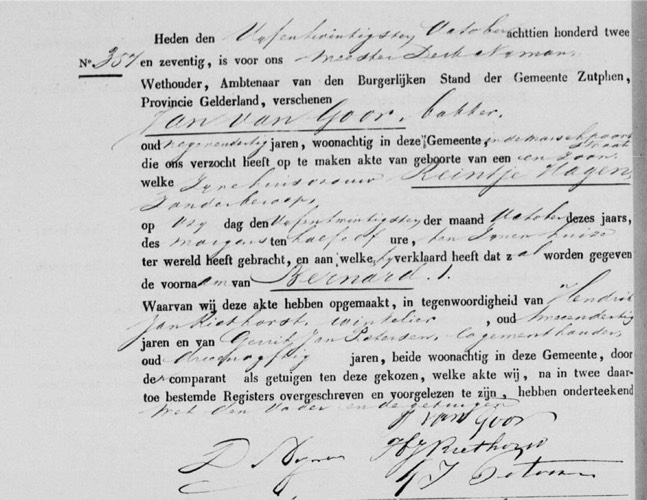 Heden den Vyfentwintigsten October achttien honderd twee
No 357 en zeventig, is voor ons Meester Derk Nyman
Wethouder, Ambtenaar van den Burgerlijken Stand der Gemeente Zutphen,
Provincie Gelderland, verschenen
Jan van Goor, bakker,
oud negenendertig jaren, woonachtig in deze Gemeente, in de Marschpoort
straat
die ons verzocht heeft op te maken akte van geboorte van een een Zoon,
welke Zyne huisvrouw Reintje Hagen,
Zonder beroep,
op Vry dag den Vyfentwintigsten der maand October dezes jaars,
des morgens ten half ure, ten Zynen huize
ter wereld heeft gebracht, en aan welke hy verklaard heeft dat zal worden gegeven
de voornaam van Bernard.
Waarvan wij deze akte hebben opgemaakt, in tegenwoordigheid van Hendrik
Jan Riethorst, winkelier, oud tweeendertig
jaren en van Gerrit Jan Petersen, logementhouder,
oud drieenvyftig jaren, beide woonachtig in deze Gemeente, door
den comparant als getuigen ten deze gekozen, welke akte wij, na in twee daar-
toe bestemde Registers overgeschreven en voorgelezen te zijn, hebben onderteekend
met den Vader en de getuigen
J van Goor
D Nyman HJ Riethorst
GJ Petersen